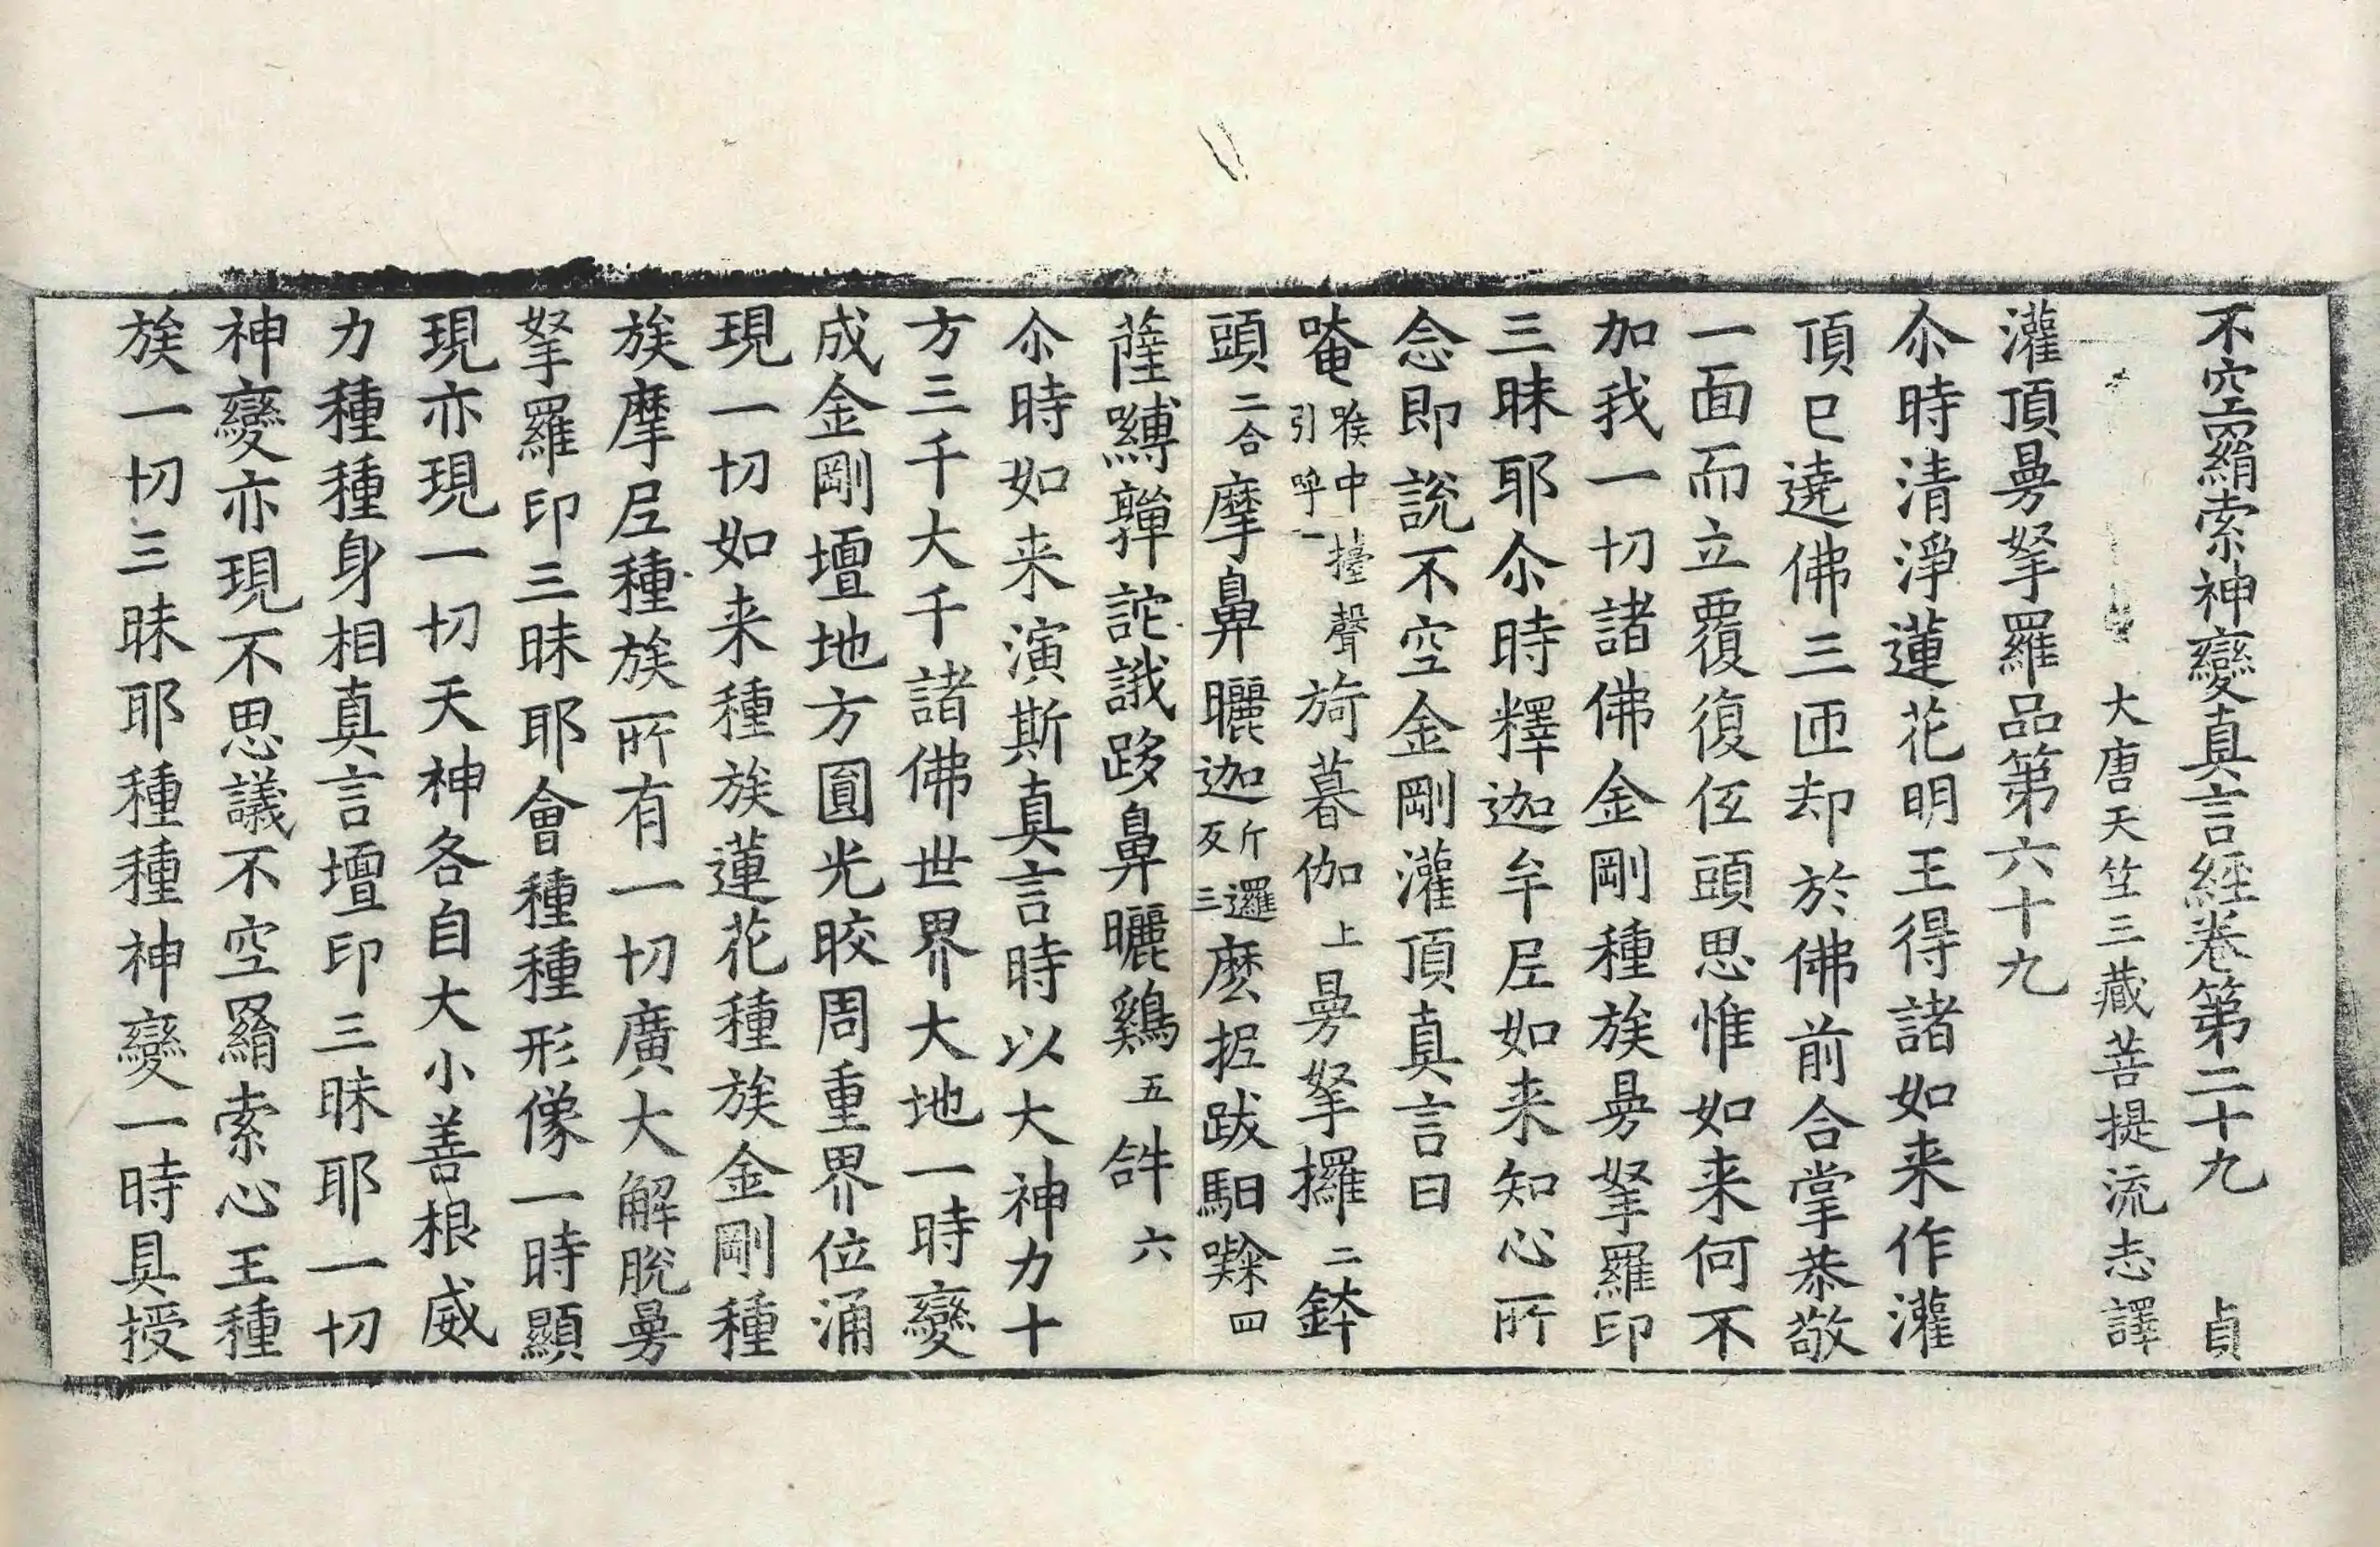 不空羂索神變真言經卷第二十九　貞
大唐天竺三藏菩提流志譯
灌頂曼拏羅品第六十九
尒時清淨蓮花明王得諸如来作灌
頂已遶佛三匝却於佛前合掌恭敬
一面而立覆復伍頭思惟如来何不
加我一切諸佛金剛種族曼拏羅印
三昧耶尒時釋迦牟尼如来知心所
念即說不空金剛灌頂真言曰
唵喉中擡聲引呼一旖暮伽上曼拏攞二鉢
頭二合摩鼻曬迦斤邏反三麽抳跋馹㘑四
薩嚩嚲詑誐跢鼻曬鷄五𤙖六
尒時如来演斯真言時以大神力十
方三千大千諸佛世界大地一時變
成金剛壇地方圓光晈周重界位涌
現一切如来種族蓮花種族金剛種
族摩尼種族所有一切廣大解脫曼
拏羅印三昧耶會種種形像一時顯
現亦現一切天神各自大小善根威
力種種身相真言壇印三昧耶一切
神變亦現不思議不空羂索心王種
族一切三昧耶種種神變一時具授